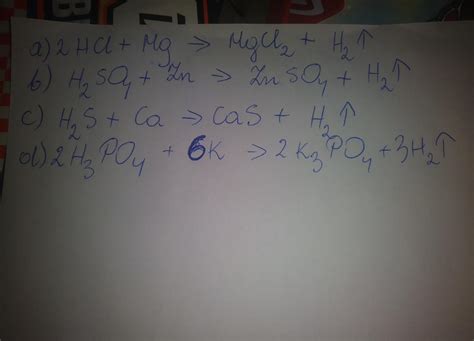 a) 2HCl + Mg → MgCl₂ + H₂↑
b) H₂SO₄ + Zn → ZnSO₄ + H₂↑
c) H₂S + Ca → CaS + H₂↑
d) 2H₃PO₄ + 6K → 2K₃PO₄ + 3H₂↑